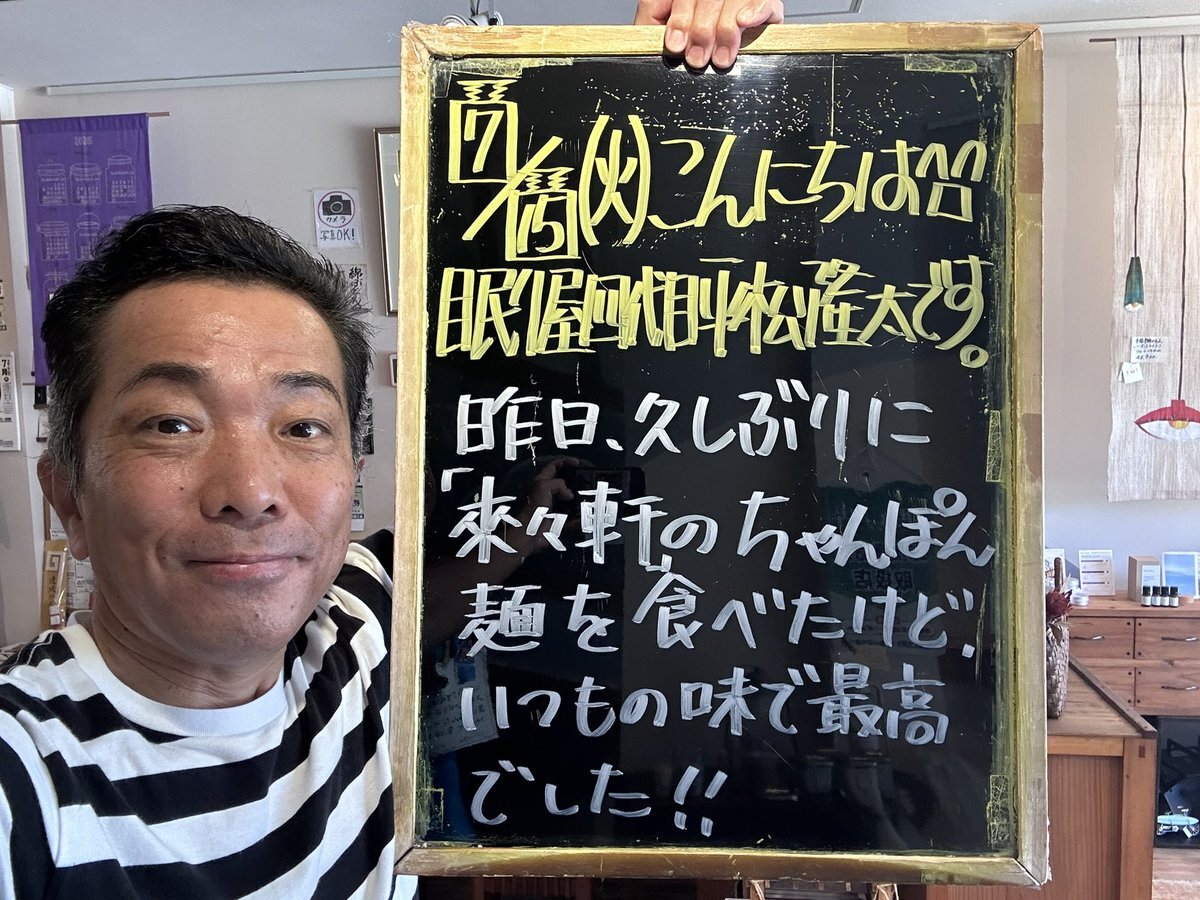 2025
カメラ
写真OK!
7/15(火)こんにちは
眠り屋四代目平松隆太です。
昨日、久しぶりに
「来々軒」のちゃんぽん
麺を食べたけど、
いつもの味で最高
でした!!